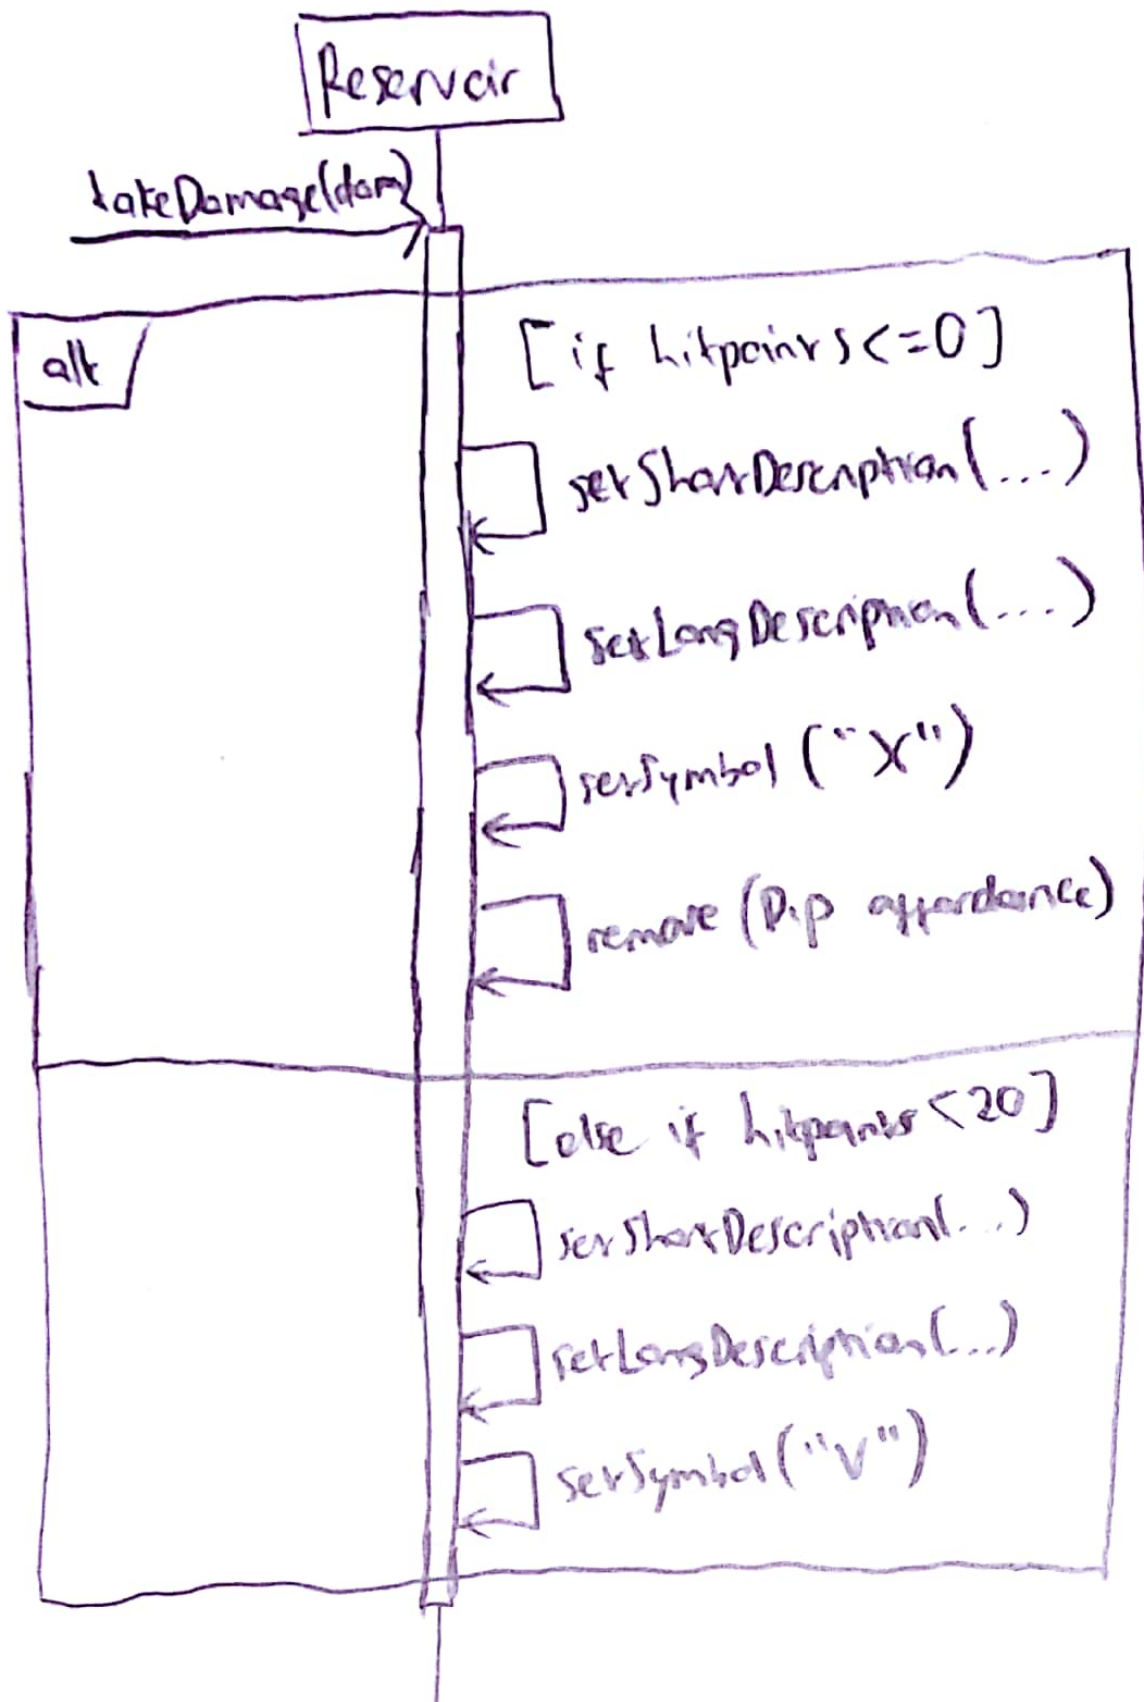 Reservoir
takeDamage(dam)
alt
[if hitpoints<=0]
setShortDescription(...)
setLongDescription(...)
setSymbol("X")
remove (Dip affordance)
[else if hitpoints<20]
setShortDescription(...)
setLongDescription(...)
setSymbol("V")